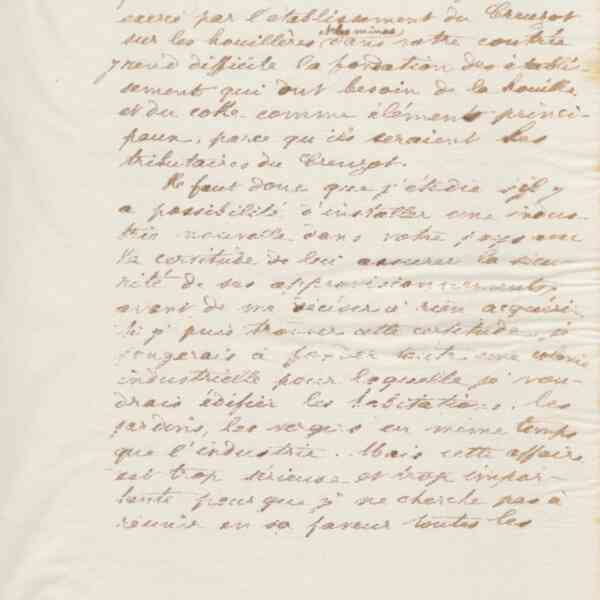 exercé par l'établissement du Creuzot
sur les houillères & les mines dans votre contrée
rend difficile la fondation des établis-
sement qui ont besoin de la houille
et du coke comme éléments princi-
paux, parce qu'ils seraient les
tributaires du Creuzot.
Il faut donc que j'étudie s'il y
a possibilité d'installer une indus-
trie nouvelle dans votre pays avec
la certitude de lui assurer la sécu-
rité de ses approvisionnements,
avant de me décider à rien acquérir.
Si j' puis trouver cette certitude, je
songerais à fonder toute une colonie
industrielle pour laquelle je vou-
drais édifier les habitations, les
jardins, les en même temps
que l'industrie. Mais cette affaire
est trop sérieuse et trop impor-
tante pour que j' ne cherche pas à
réunir en sa faveur toutes les